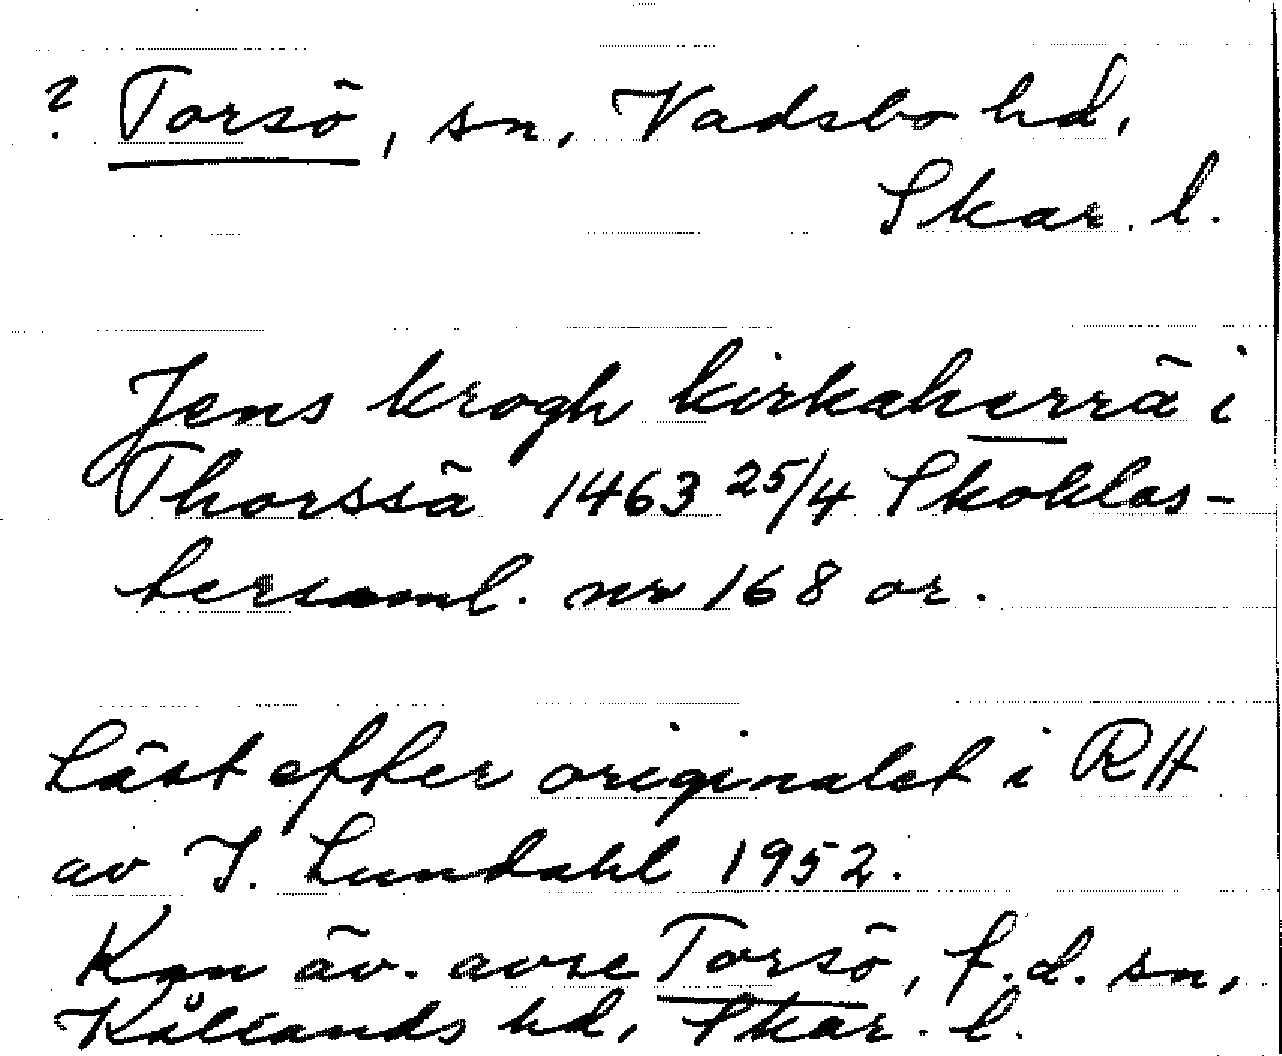 ? Torsö, sn, Vadsbo hd,
Skar. l.
Jens krogh kirkaherrä i
Thorssä 1463 25/4 Skoklas-
tersaml. nr 168 or.
Läst efter originalet i RA
av I. Lundahl 1952.
Kan äv. avse Torsö, f.d. sn,
Kållands hd, Skar. l.